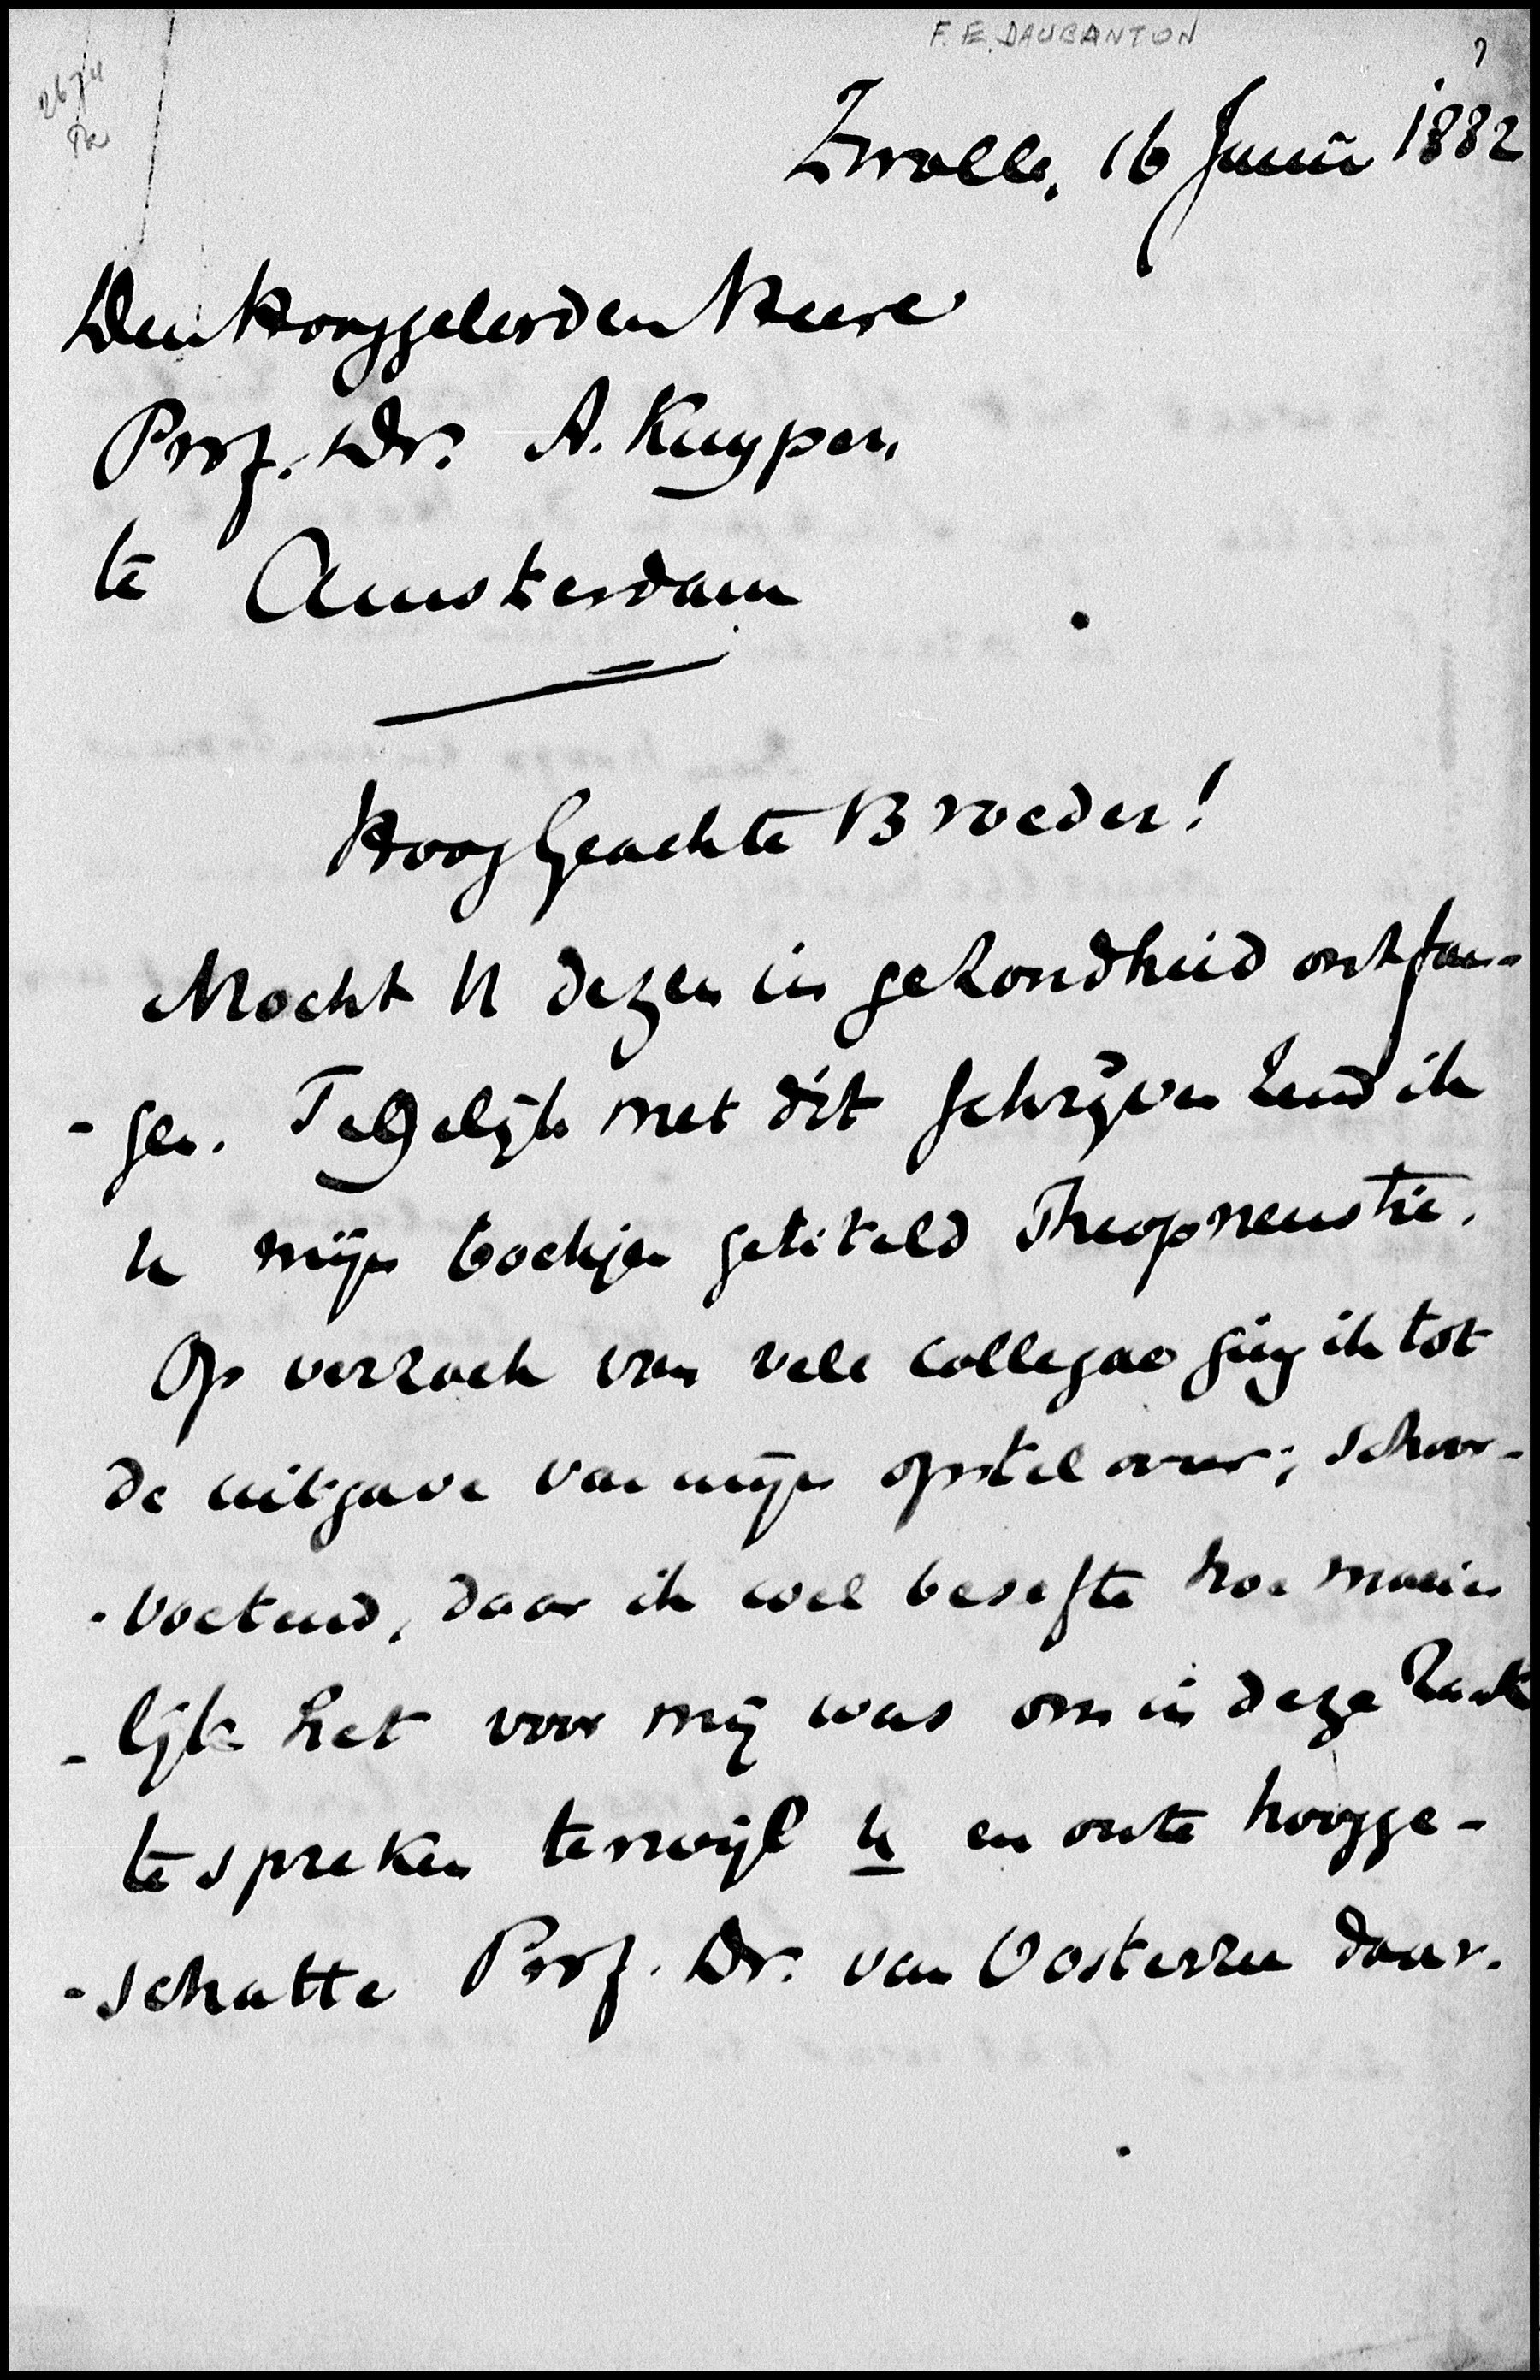 F. E. DAUBANTON
2674
Zwolle, 16 Junij 1882
Den Hooggeleerden Heere
Prof. Dr. A. Kuyper,
te Amsterdam
HoogGeachte Broeder!
Mocht U dezen in gezondheid ontfan-
-gen. Tegelijk met dit schrijven zend ik
U mijn boekjen getiteld Theopneustie.
Op verzoek van vele collegas ging ik tot
de uitgave van mijn opstel over; schoor-
-voetend, daar ik wel besefte hoe moeie
-lijk het voor mij was om in deze zaak
te spreken terwijl U en onze hoogge-
-schatte Prof. Dr. van Oosterzee daar.